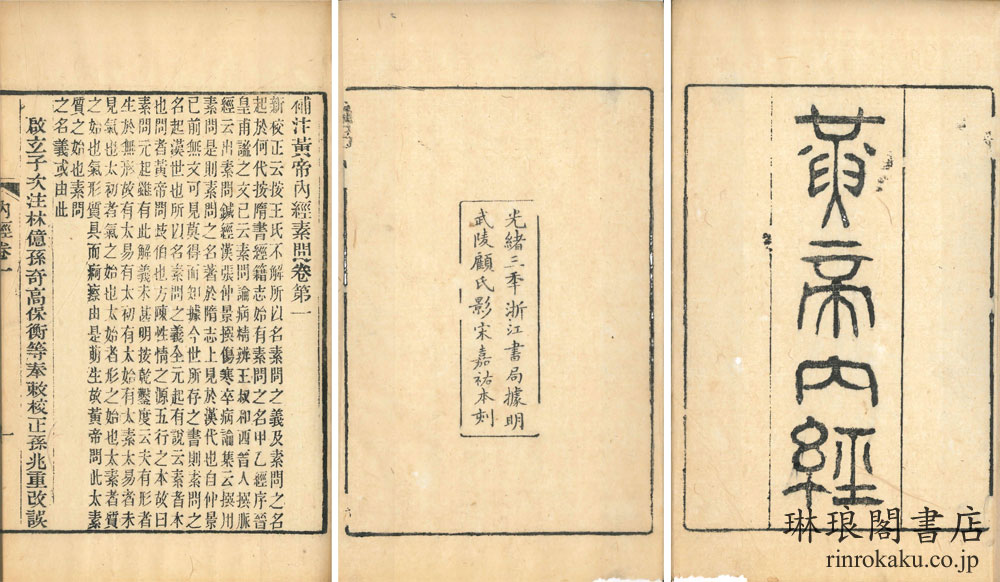 黃帝內經
光緒三年浙江書局據明
武陵顧氏影宋嘉祐本刻
補注黃帝內經素問卷第一
新校正云按王氏不解所以名素問之義及素問之名
起於何代按隋書經籍志始有素問之名甲乙經序晉
皇甫謐之文已云素問論病精辨王叔和西晉人撰脈
經云出素問鍼經漢張仲景撰傷寒卒病論集云撰用
素問是則素問之名著於隋志上見於漢代也自仲景
已前無文可見莫得而知據今世所存之書則素問之
名起漢世也所以名素問之義全元起有說云素者本
也問者黃帝問歧伯也方陳性情之源五行之本故曰
素問元起雖有此解義未甚明按乾鑿度云夫有形者
生於無形故有太易有太初有太始有太素太易者未
見氣也太初者氣之始也太始者形之始也太素者質
之始也氣形質具而痾瘵由是萌生故黃帝問此太素
質之始也素問
之名義或由此
啟玄子次注林億孫奇高保衡等奉敕校正孫兆重改誤
內經卷一
一
琳琅閣書店
rinrokaku.co.jp